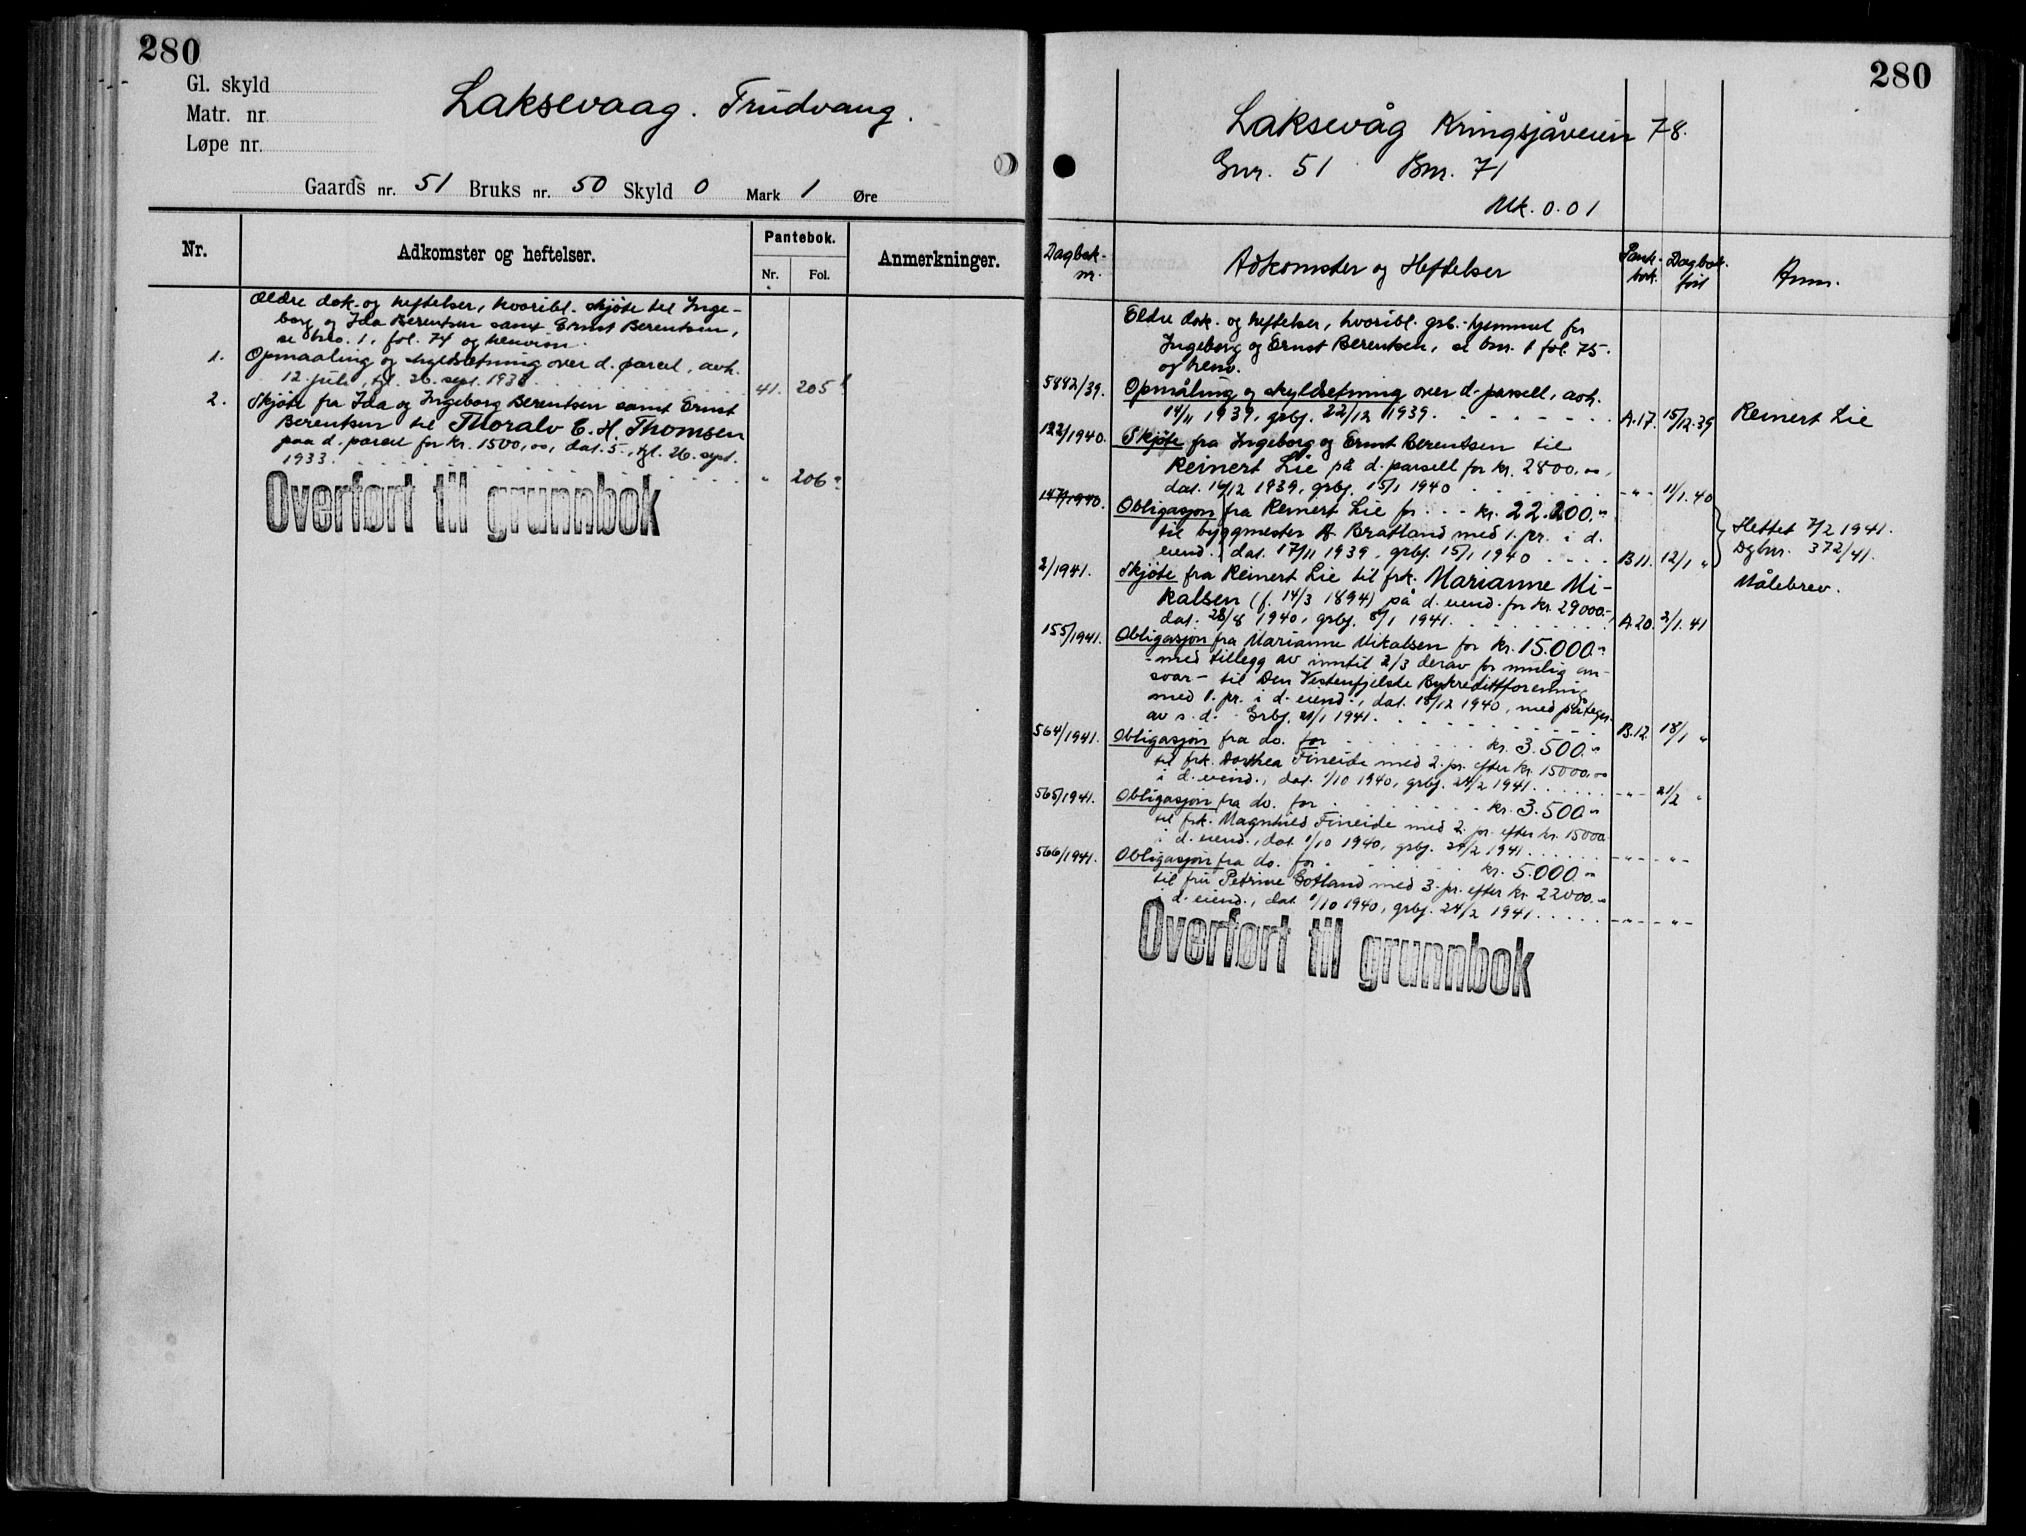 280
Gl. skyld
Matr. nr.
Løpe nr.
Laksevaag. Trudvang.
Gaards nr. 51 Bruks nr. 50 Skyld 0 Mark 1 Øre
Nr.
Adkomster og heftelser.
Pantebok.
Nr. Fol.
Anmerkninger.
Ældre dok. og heftelser, hvoribl. skjøte til Inge-
borg og Ida Berentsen samt Ernst Berentsen,
se bno. 1, fol. 74 og henvisn.
1. Opmaaling og skyldsetning over d. parcel, avh.
12. juli, tgl. 26. sept. 1933. 41. 205
2. Skjøte fra Ida og Ingeborg Berentsen samt Ernst
Berentsen til Thoralv C. H. Thomsen
paa d. parcel for kr. 1500,00, dat. 5., tgl. 26. sept.
1933. " 206
Overført til grunnbok
280
Laksevåg Kringsjåveien 78.
Gnr. 51 Bnr. 71
Mk. 0.01
Dagbok-
nr.
Adkomster og Heftelser
Pank-
bok.
Dagbok-
ført
Anm.
Eldre dok. og heftelser, hvoribl. grb.-hjemmel for
Ingeborg og Ernst Berentsen, se bnr. 1 fol. 75.
og henv.
5882/39. Opmåling og skyldsetning over d. parsell, avh.
14/11 1939, grbj. 22/12 1939. A.17. 15/12.39 Reinert Lie
122/1940. Skjøte fra Ingeborg og Ernst Berentsen til
Reinert Lie på d. parsell for kr. 2800.00,
dat. 16/12 1939, grbj. 15/1 1940 - " - 11/1.40
147/1940. Obligasjon fra Reinert Lie for kr. 22.200.-
til byggmester A. Bratland med 1. pr. i d.
eiend., dat. 17/11 1939, grbj. 15/1 1940 B.11. 12/1 "
Slettet 7/2 1941.
Dgbnr. 372/41.
2/1941. Skjøte fra Reinert Lie til frk. Marianne Mi-
kalsen (f. 14/3 1894) på d. eiend. for kr. 29000.-,
dat. 28/8 1940, grbj. 8/1 1941. A.20. 2/1.41
Målebrev.
155/1941. Obligasjon fra Marianne Mikalsen for kr. 15.000.-
- med tillegg av inntil 2/3 derav for mulig an-
svar - til Den Vestenfjelske Bykredittforening
med 1. pr. i d. eiend., dat. 18/12 1940, med påtegn.
av s. d. Grbj. 21/1 1941. B.12. 18/1 "
564/1941. Obligasjon fra do. for kr. 3.500.-
til frk. Dorthea Fineide med 2. pr. efter kr. 15000.00
i d. eiend., dat. 1/10 1940, grbj. 24/2 1941. - " - 21/2 "
565/1941. Obligasjon fra do. for kr. 3.500.-
til frk. Magnhild Fineide med 2. pr. efter kr. 15000
i d. eiend., dat. 1/10 1940, grbj. 24/2 1941. - " - - " -
566/1941. Obligasjon fra do. for kr. 5.000.-
til fru Petrine Gotland med 3. pr. efter kr. 22000.-
i d. eiend., dat. 1/10 1940, grbj. 24/2 1941. - " - - " -
Overført til grunnbok